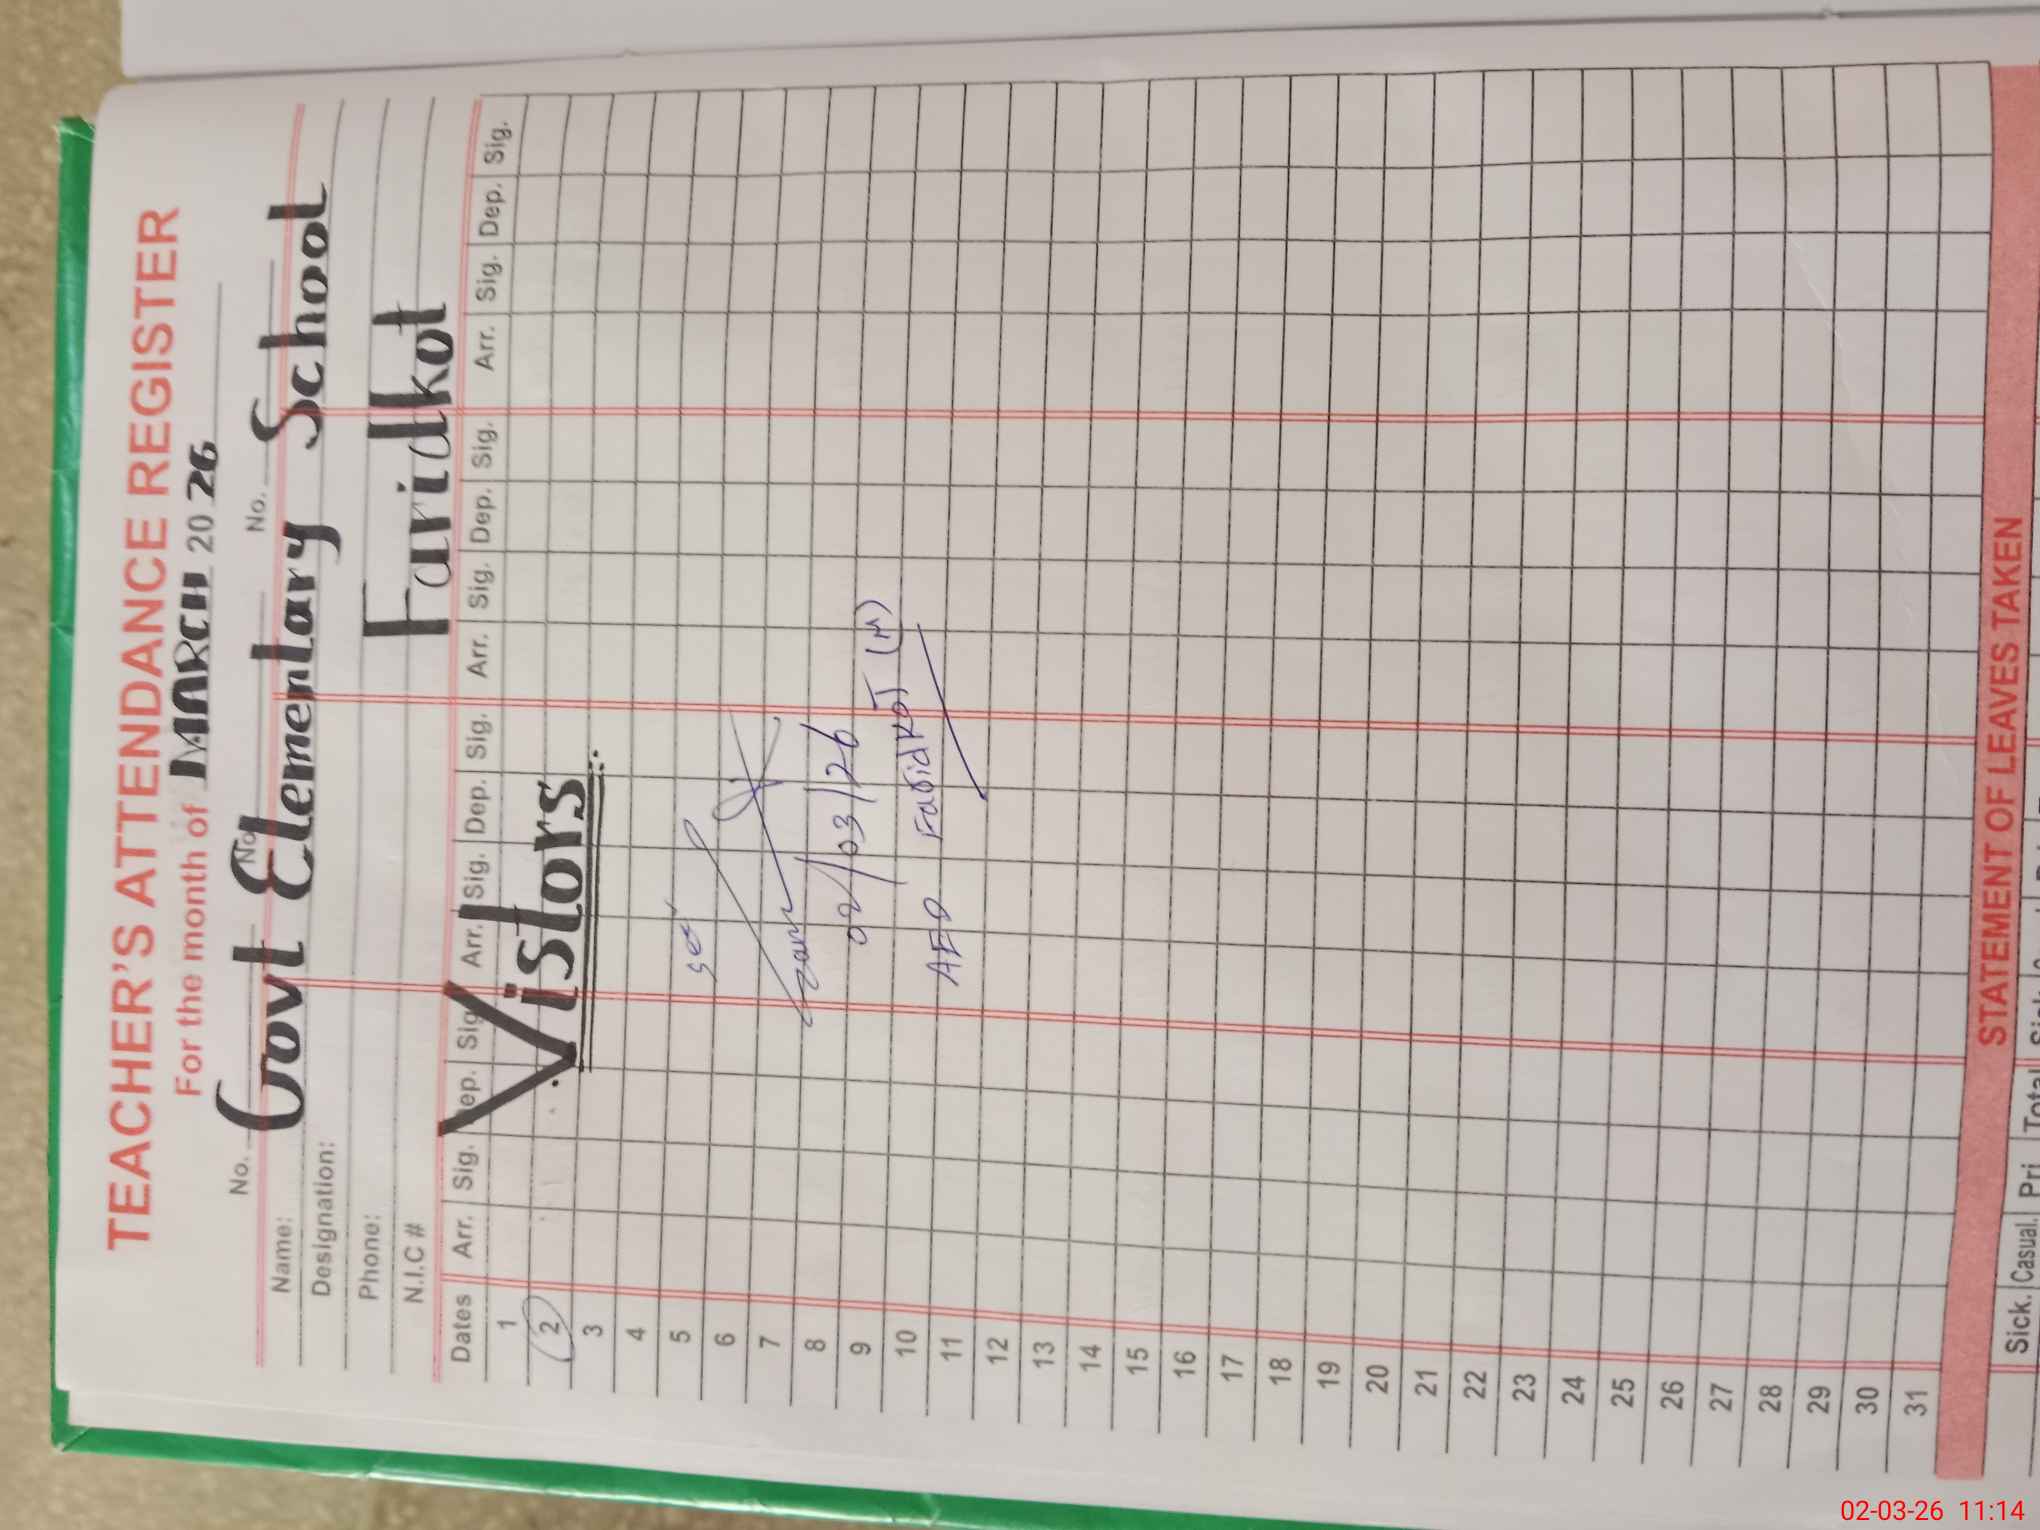 TEACHER'S ATTENDANCE REGISTER
For the month of MARCH 2026
No. No. No.
Govt Elementary School
Name:
Designation:
Faridkot
Phone:
N.I.C #
Dates Arr. Sig. Dep. Sig. Arr. Sig. Dep. Sig. Arr. Sig. Dep. Sig. Arr. Sig. Dep. Sig.
Vistors
1
2
3
4
5
6
7
8
9
10
11
12
13
14
15
16
17
18
19
20
21
22
23
24
25
26
27
28
29
30
31
02/03/26
AEO Faridkot (M)
STATEMENT OF LEAVES TAKEN
Sick. Casual. Pri Total
02-03-26 11:14